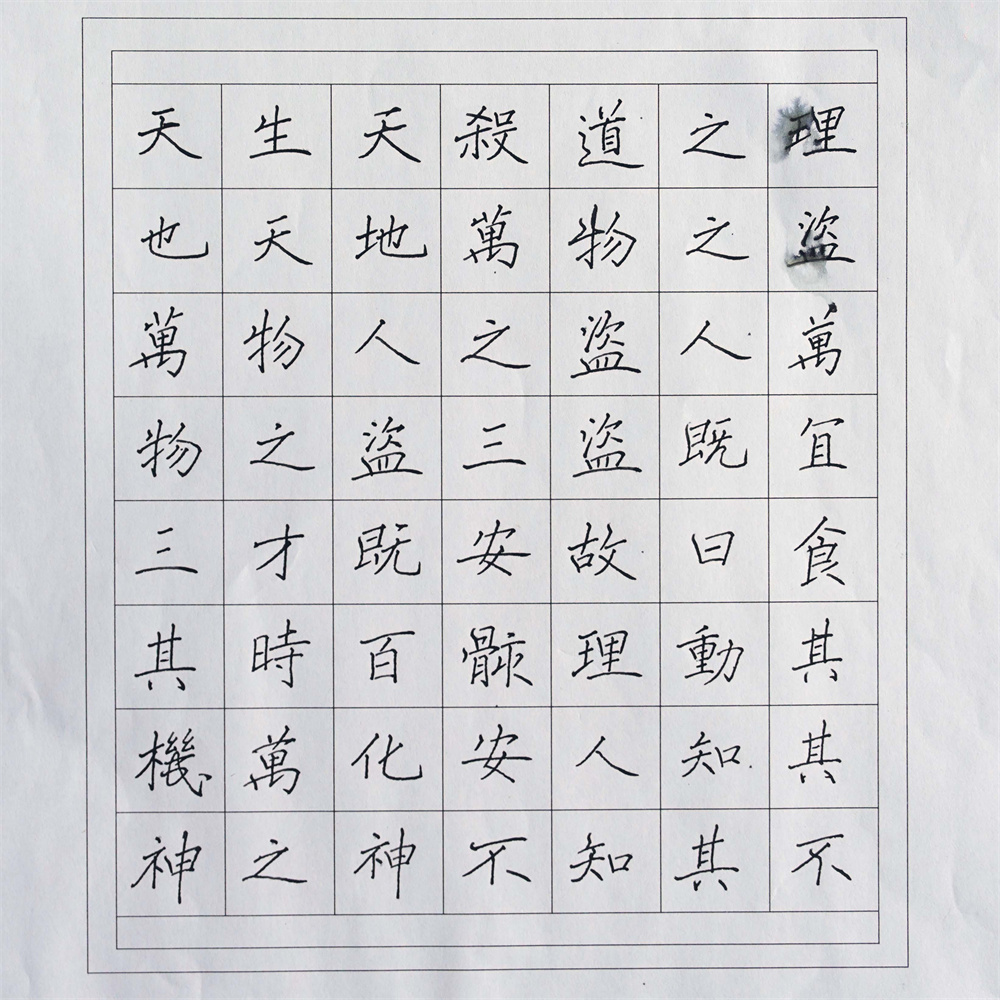 天生天殺道之理
也天地萬物之盜
萬物人之盜人萬
物之盜三盜既宜
三才既安故曰食
其時百骸理動其
機萬化安人知其
神之神不知其不